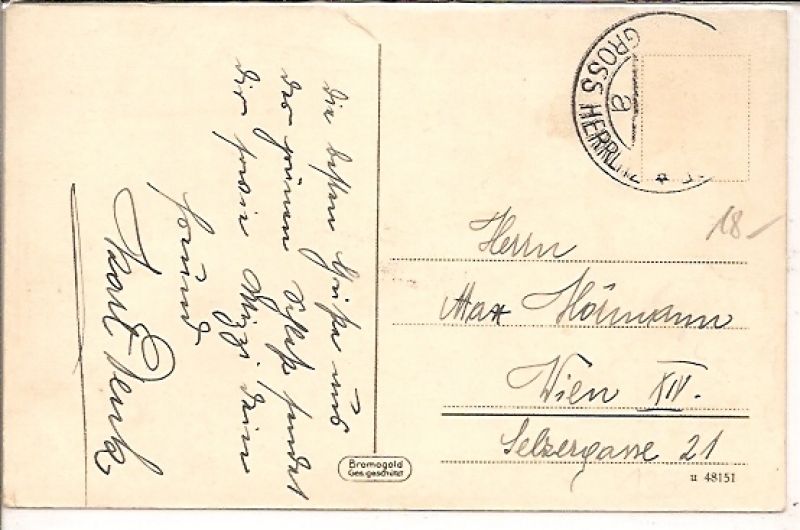 die besten Grüße aus
der grünen Schles. sendet
dir sowie Mizzi dein
Freund
Karl Denk
GROSS HERRLITZ
a
18.-
Herrn
Max Hörmann
Wien XIV.
Selzergasse 21
Bromogold
Ges. geschützt
u 48151